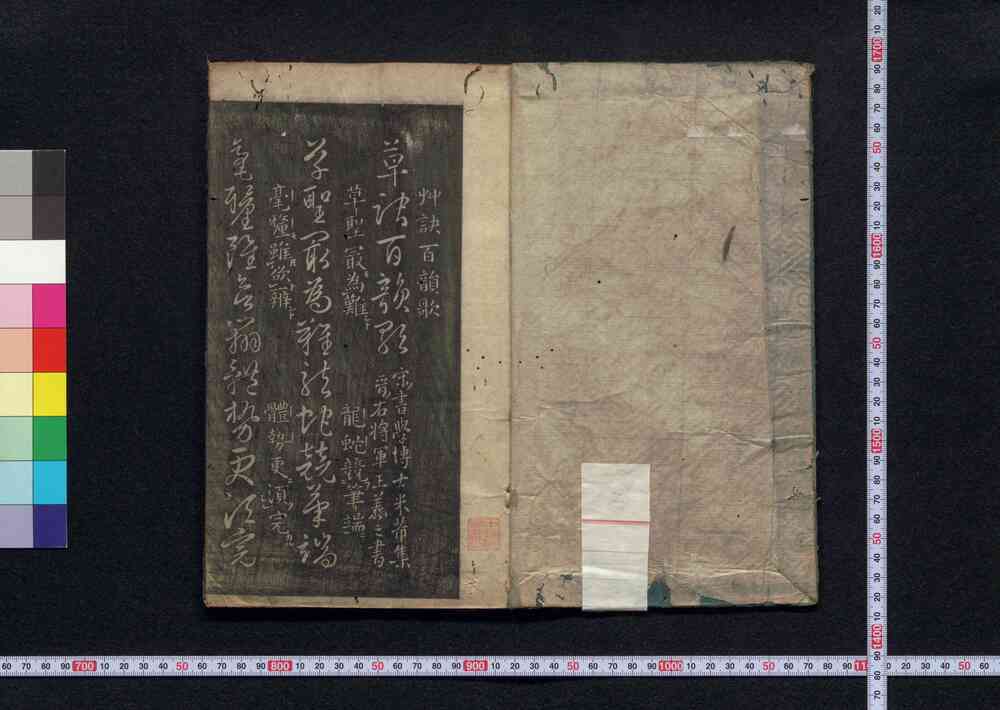 艸訣百韻歌
草訣百韻歌
宋書學博士米芾集
晉右將軍王羲之書
草聖最為難
龍蛇競筆端
草聖最為難龍蛇競筆端
毫釐雖欲辨
體勢更須完
毫釐雖欲辨體勢更須完